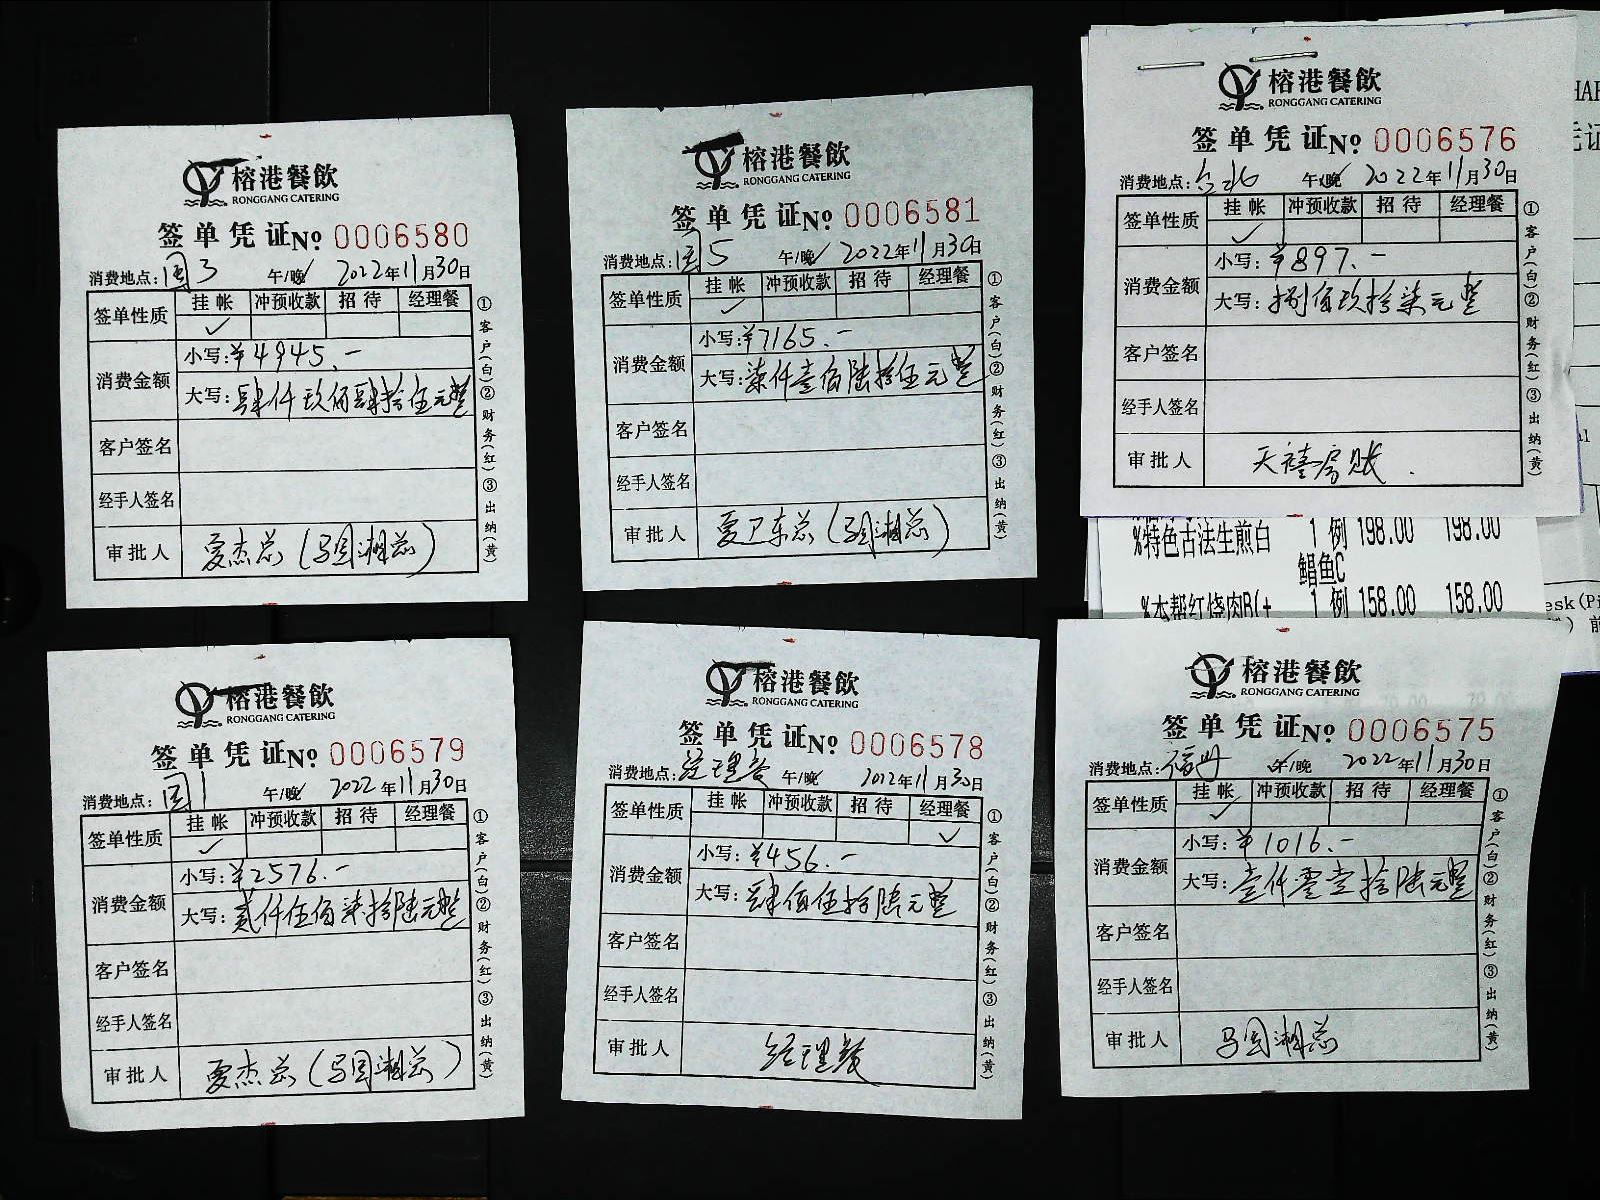 榕港餐飲
RONGGANG CATERING
签单凭证No. 0006580
消费地点:国3 午/晚 2022年11月30日
签单性质 挂帐 冲预收款 招待 经理餐
✓
消费金额 小写:¥4945.-
大写:肆仟玖佰肆拾伍元整
客户签名
经手人签名
审批人 夏杰总(马国湘总)
①客户(白)②财务(红)③出纳(黄)
榕港餐飲
RONGGANG CATERING
签单凭证No. 0006581
消费地点:国5 午/晚 2022年11月30日
签单性质 挂帐 冲预收款 招待 经理餐
✓
消费金额 小写:¥7165.-
大写:柒仟壹佰陆拾伍元整
客户签名
经手人签名
审批人 夏卫东总(马国湘总)
①客户(白)②财务(红)③出纳(黄)
榕港餐飲
RONGGANG CATERING
签单凭证No. 0006576
消费地点: 午/晚 2022年11月30日
签单性质 挂帐 冲预收款 招待 经理餐
✓
消费金额 小写:¥897.-
大写:捌佰玖拾柒元整
客户签名
经手人签名
审批人 天禧房账.
①客户(白)②财务(红)③出纳(黄)
%特色古法生煎白 1 例 198.00 198.00
鲳鱼C
%本帮红烧肉B(+ 1 例 158.00 158.00
榕港餐飲
RONGGANG CATERING
签单凭证No. 0006579
消费地点:国1 午/晚 2022年11月30日
签单性质 挂帐 冲预收款 招待 经理餐
✓
消费金额 小写:¥2576.-
大写:贰仟伍佰柒拾陆元整
客户签名
经手人签名
审批人 夏杰总(马国湘总)
①客户(白)②财务(红)③出纳(黄)
榕港餐飲
RONGGANG CATERING
签单凭证No. 0006578
消费地点:经理餐 午/晚 2022年11月30日
签单性质 挂帐 冲预收款 招待 经理餐
✓
消费金额 小写:¥456.-
大写:肆佰伍拾陆元整
客户签名
经手人签名
审批人 经理餐
①客户(白)②财务(红)③出纳(黄)
榕港餐飲
RONGGANG CATERING
签单凭证No. 0006575
消费地点: 午/晚 2022年11月30日
签单性质 挂帐 冲预收款 招待 经理餐
✓
消费金额 小写:¥1016.-
大写:壹仟零壹拾陆元整
客户签名
经手人签名
审批人 马国湘总
①客户(白)②财务(红)③出纳(黄)